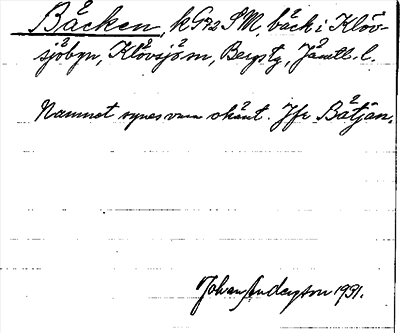 Bäcken, k G92 SM, bäck i Klöv-
sjöbyn, Klövsjö sn, Bergs tg, Jämtl. l.
Namnet synes vara okänt. Jfr Båtjän.
Johan Anderson 1931.